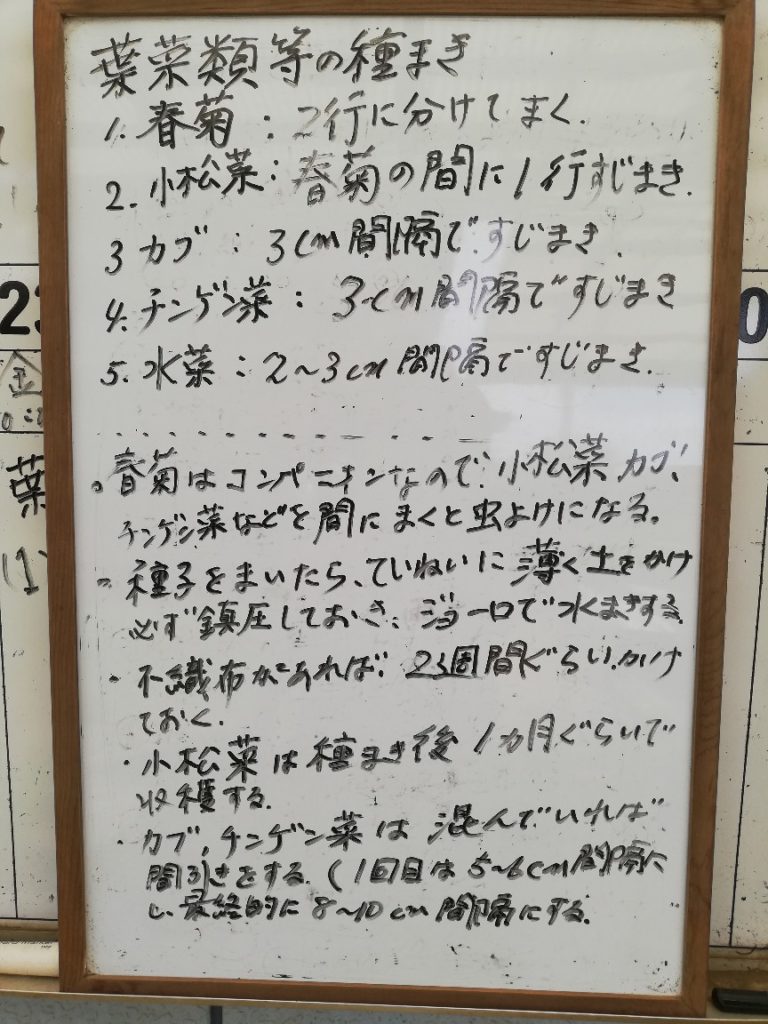 葉菜類等の種まき
1. 春菊：2行に分けてまく.
2. 小松菜：春菊の間に1行すじまき.
3 カブ：3cm間隔で.すじまき.
4. チンゲン菜：3cm間隔ですじまき
5. 水菜：2～3cm間隔ですじまき.
。春菊はコンパニオンなので、小松菜カブ、
チンゲン菜などを間にまくと虫よけになる。
。種子をまいたら、ていねいに薄く土をかけ
必ず鎮圧しておき、ジョーロで水まきする
・不織布があれば、2、3週間ぐらい.かけ
ておく.
・小松菜は種まき後1カ月ぐらいで
収穫する.
・カブ,チンゲン菜は混んでいれば
間引きをする.(1回目は5～6cm間隔に
し.最終的に8～10cm間隔にする.
23
金
葉
(1)
0